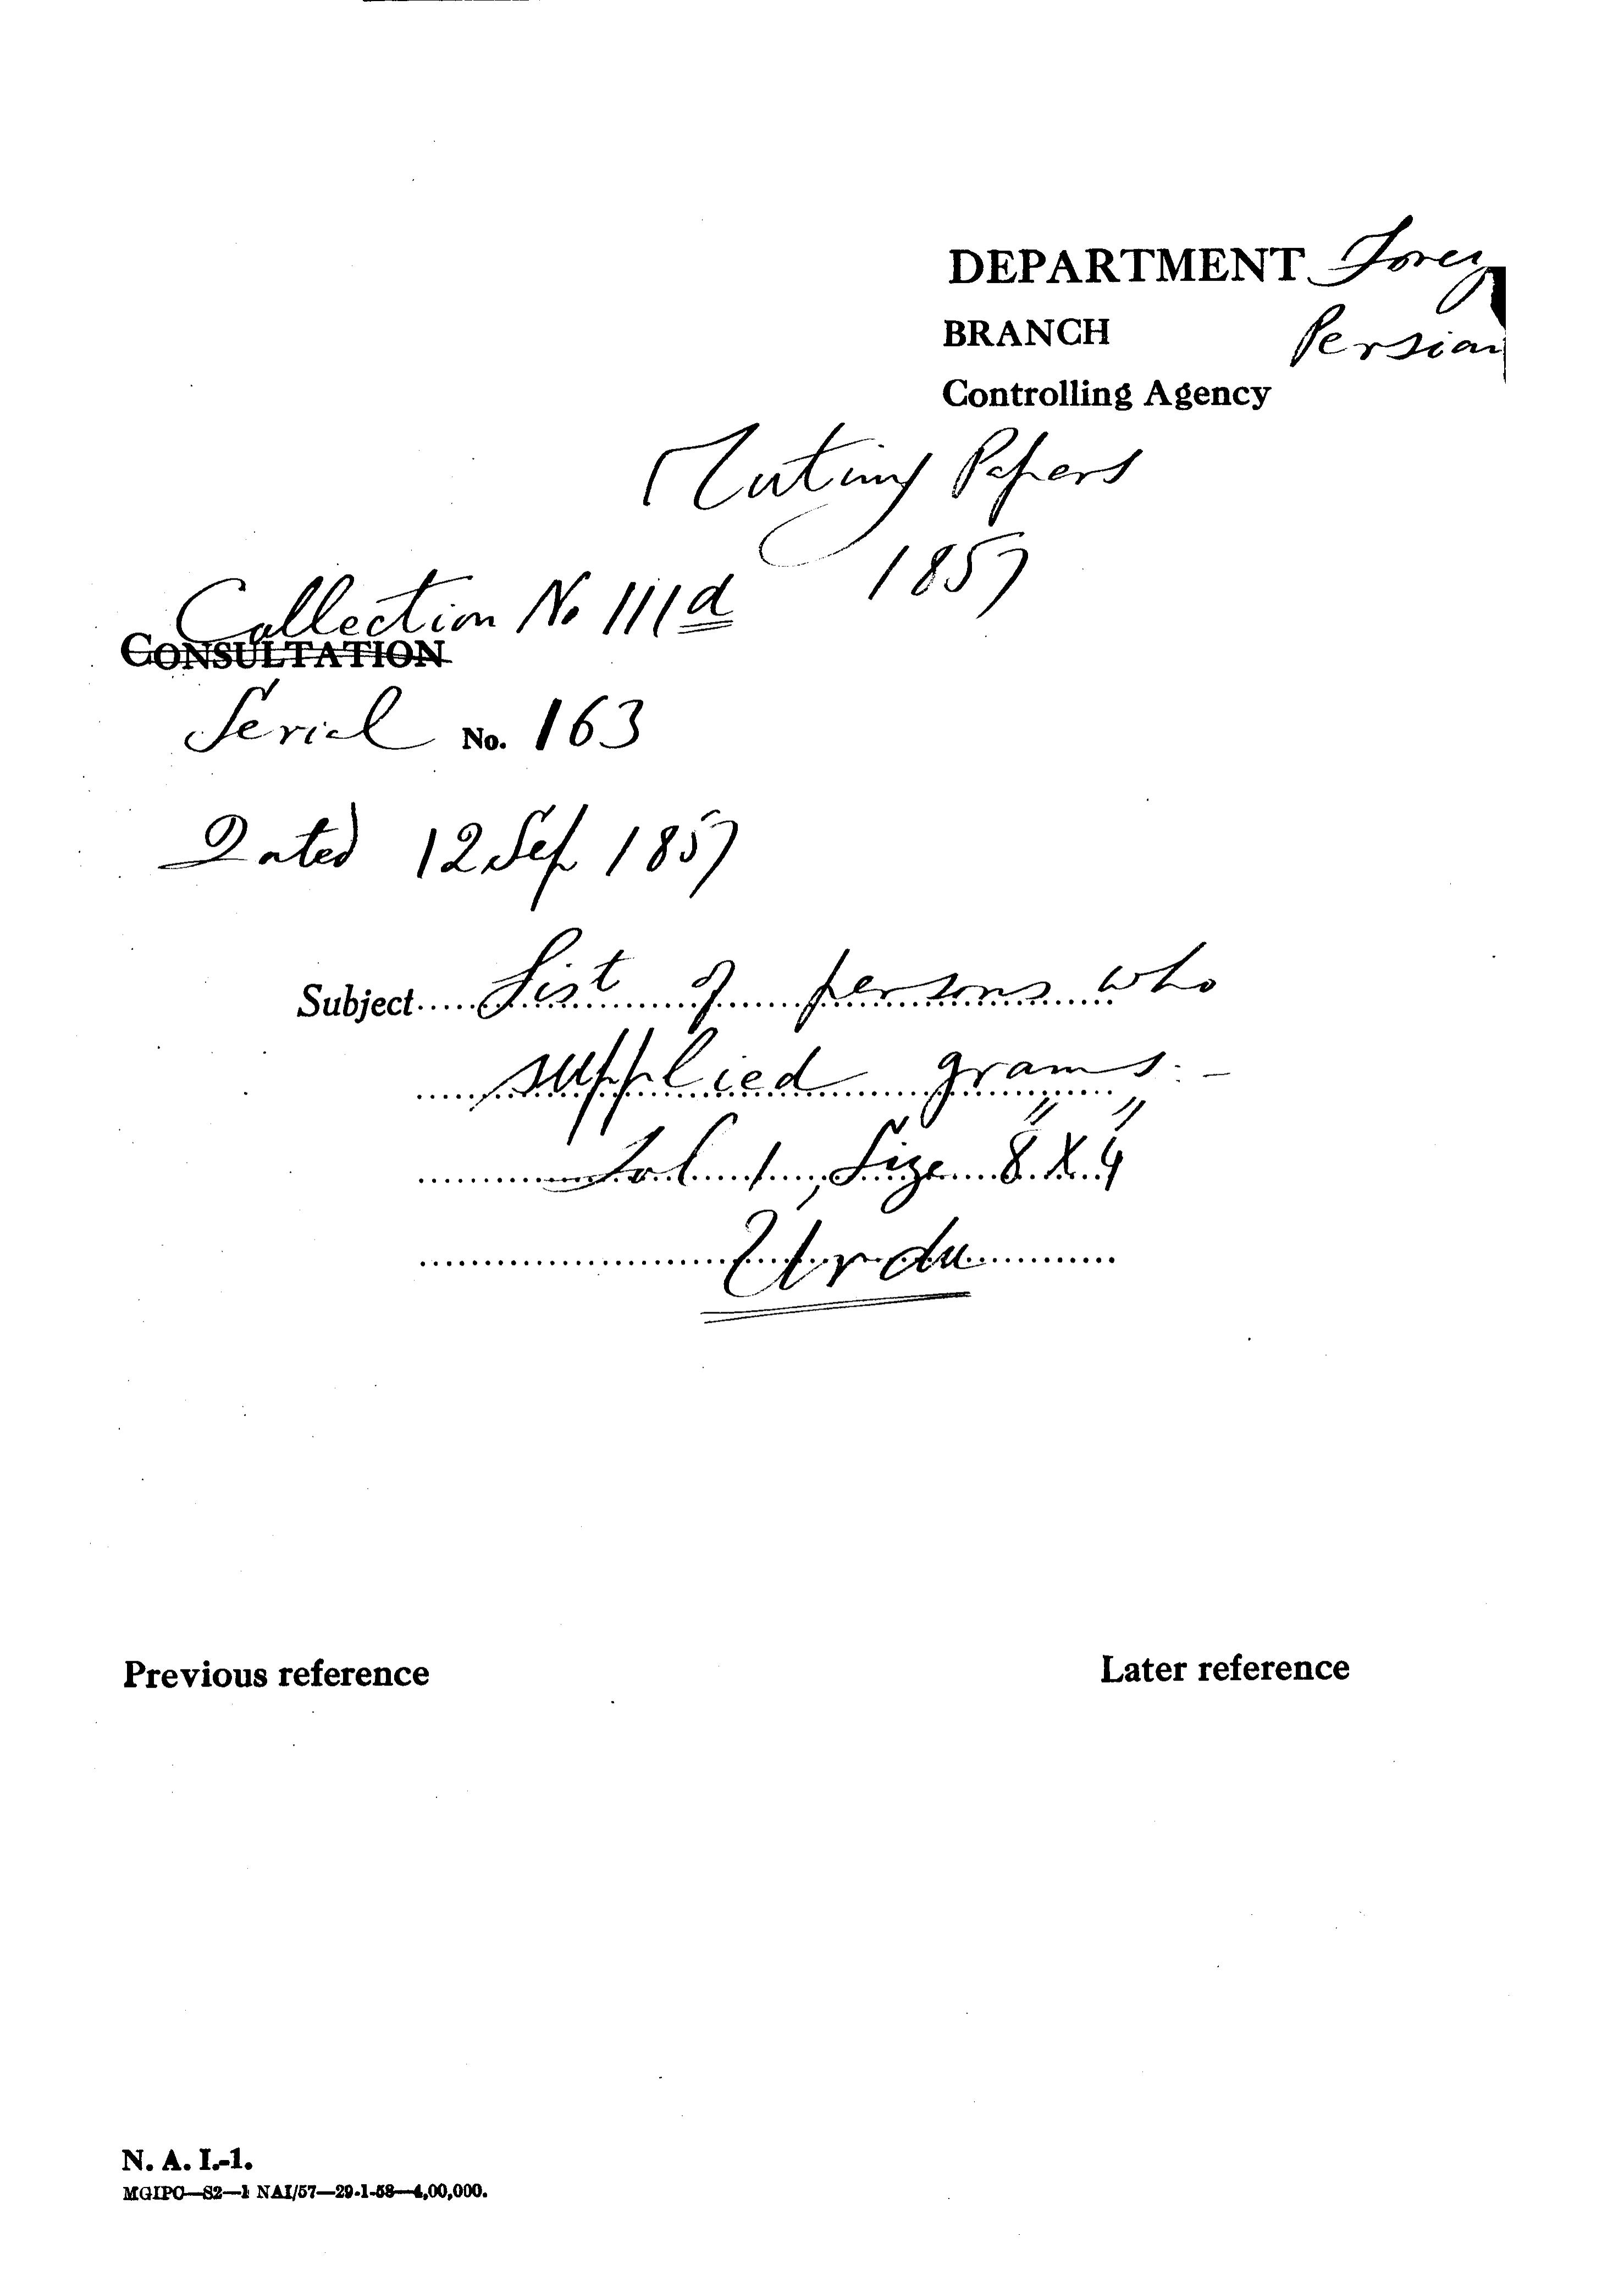 DEPARTMENT Foreig
BRANCH Persian
Controlling Agency
Mutiny Papers
1857
Collection No 111d
CONSULTATION
Serial No. 163
Dated 12 Sep 1857
Subject List of persons who
supplied grams:-
Fol 1, Size 8" X 4"
Urdu
Previous reference
Later reference
N. A. I.-1.
MGIPC—S2—1 NAI/57—29-1-58—4,00,000.